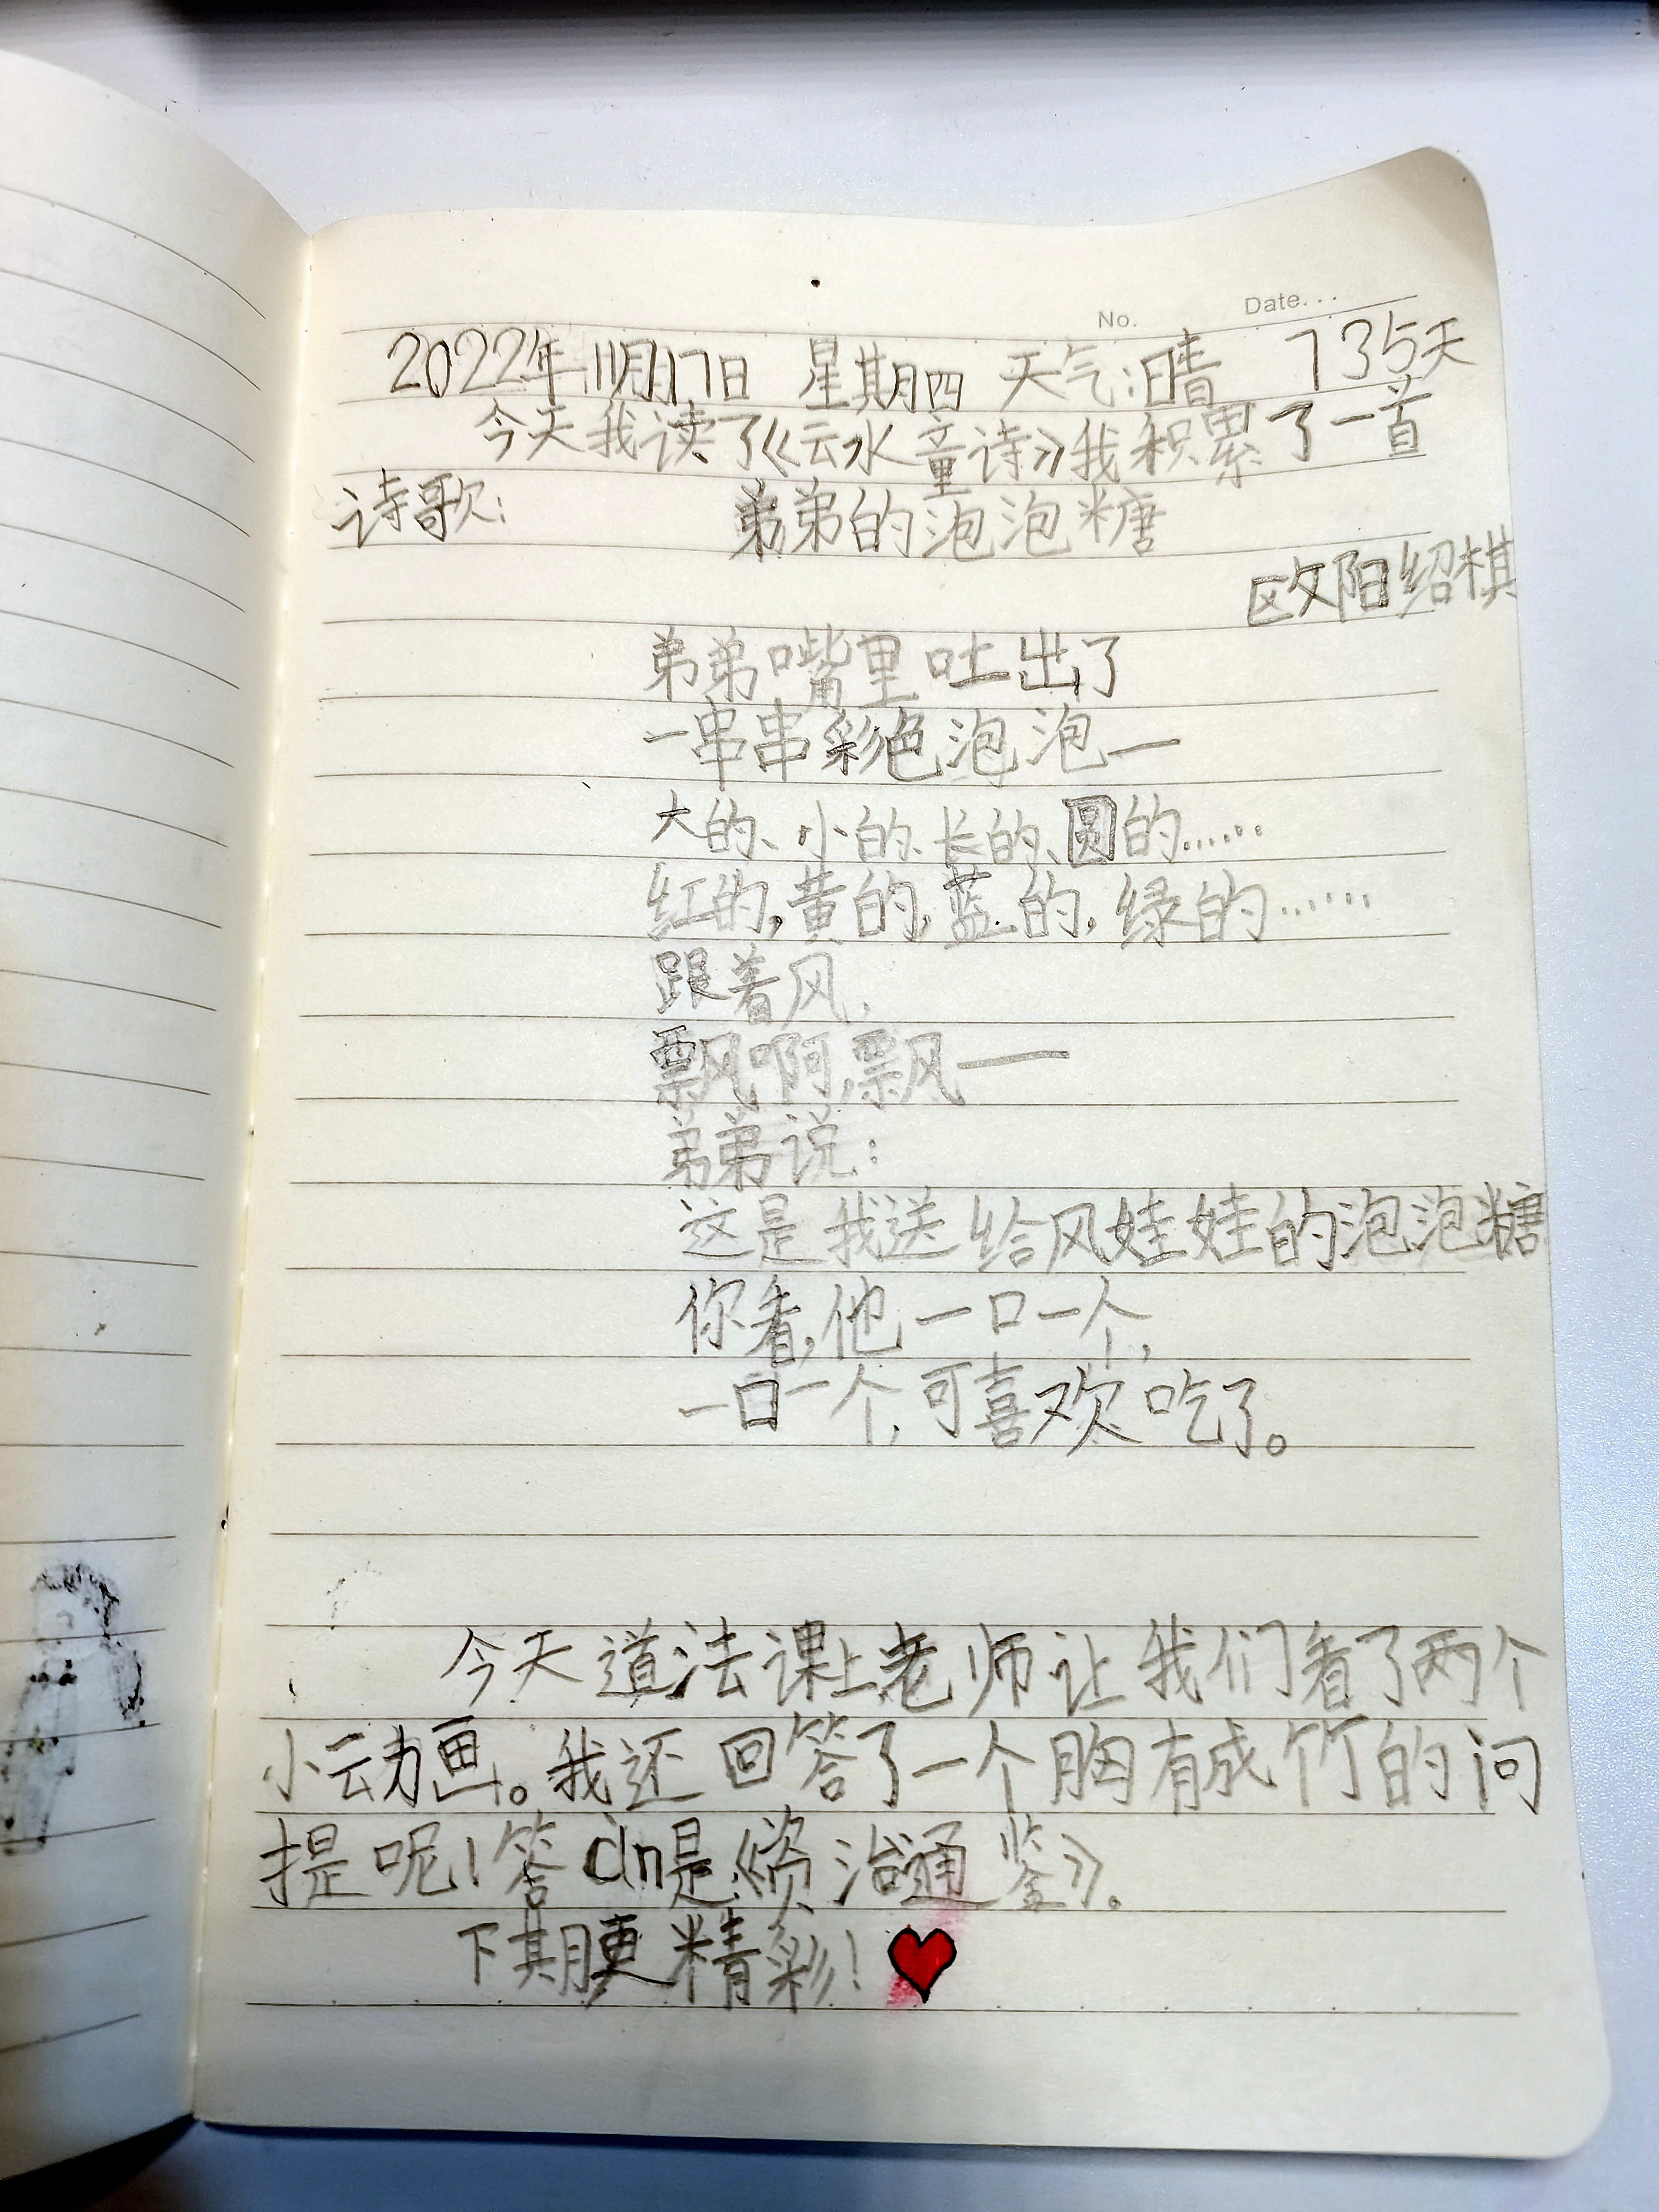 No.
Date...
2022年11月17日 星期四 天气:晴 735天
今天我读了《云水童诗》我积累了一首
诗歌: 弟弟的泡泡糖
欧阳绍棋
弟弟嘴里吐出了
一串串彩色泡泡—
大的、小的、长的、圆的……
红的,黄的,蓝的,绿的……
跟着风,
飘啊,飘——
弟弟说:
这是我送给风娃娃的泡泡糖
你看,他一口一个,
一口一个,可喜欢吃了。
今天道法课上老师让我们看了两个
小动画。我还回答了一个胸有成竹的问
提呢!答àn是《资治通鉴》。
下期更精彩!